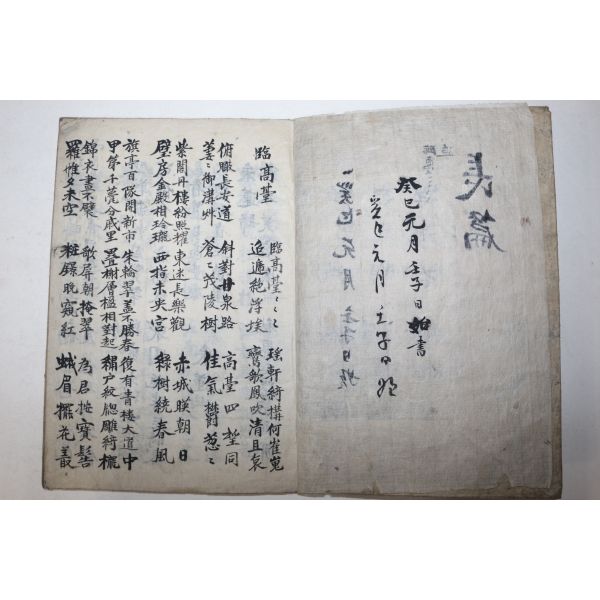 長篇
癸巳元月壬子日始書
癸巳元月壬子日
癸巳元月壬子日
臨高臺
臨高臺〻〻 瑤軒綺構何崔嵬
迢遞絶浮埃 鸞歌鳳吹清且哀
俯瞰長安道 斜對甘泉路 高臺四望同
萋〻御溝艸 蒼〻茂陵樹 佳氣欝葱〻
紫閣丹樓紛照耀 東迷長樂觀 赤城映朝日
璧房金殿相玲瓏 西指未央宮 綠樹繞春風
旗亭百隊開新市 朱輪翠盖不勝春 復有青樓大道中
甲第千甍分戚里 疊榭層楹相對起 繡戶紋牕雕綺櫳
錦衣晝不襞 歌屏朝掩翠 為君按寶髻
羅帷夕未空 粧鏡晚窺紅 蛾眉擺花叢